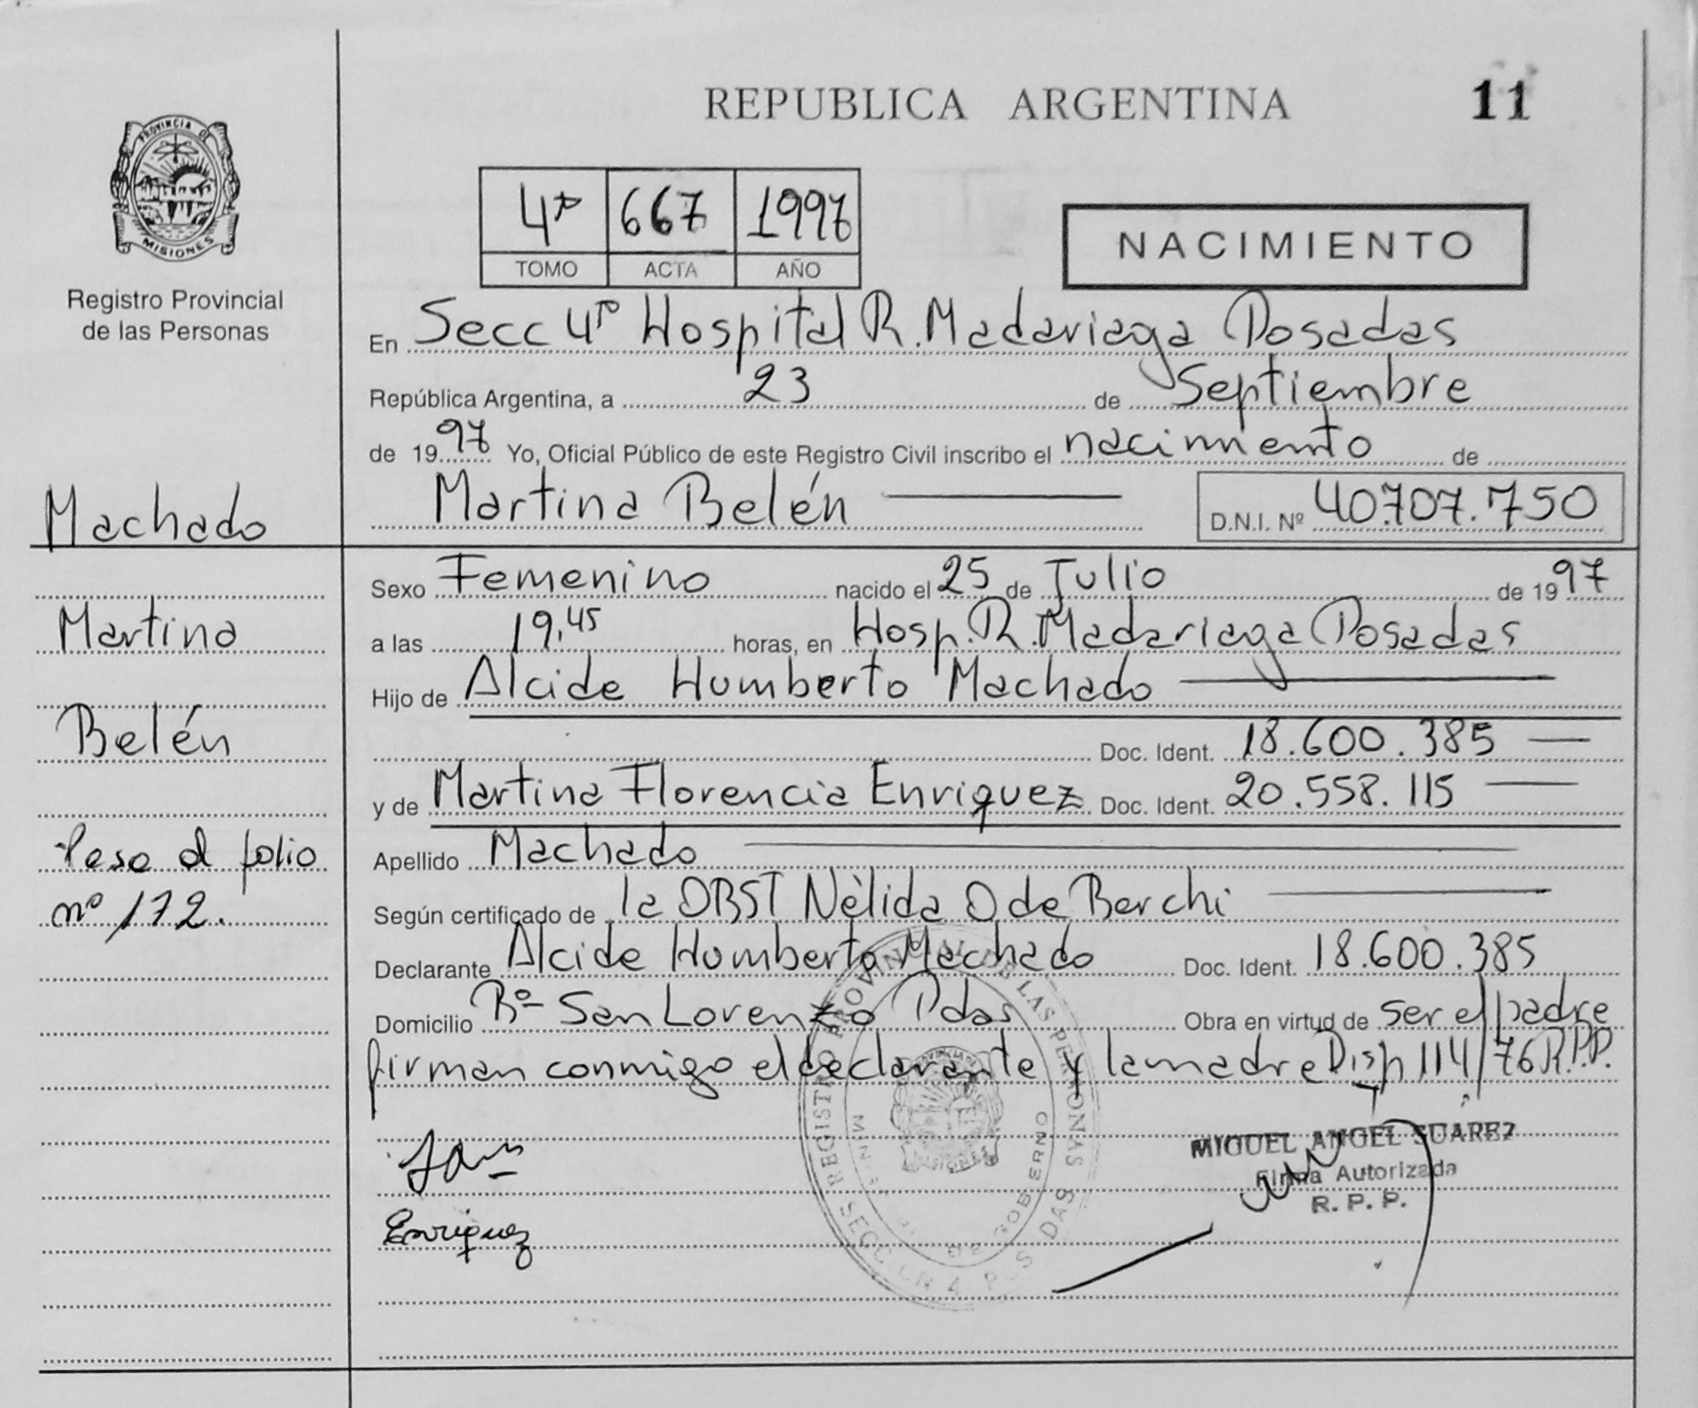 REPUBLICA ARGENTINA
11
PROVINCIA DE
MISIONES
Registro Provincial
de las Personas
4º 667 1997
TOMO ACTA AÑO
NACIMIENTO
En Secc 4º Hospital R. Madariaga Posadas
República Argentina, a 23 de Septiembre
de 1997 Yo, Oficial Público de este Registro Civil inscribo el nacimiento de
Martina Belén D.N.I. Nº 40.707.750
Machado
Sexo Femenino nacido el 25 de Julio de 1997
Martina
a las 19,45 horas, en Hosp. R. Madariaga Posadas
Hijo de Alcide Humberto Machado
Belén
Doc. Ident. 18.600.385
y de Martina Florencia Enriquez Doc. Ident. 20.558.115
Pasa al folio
nº 172.
Apellido Machado
Según certificado de la OBST Nèlida O de Berchi
Declarante Alcide Humberto Machado Doc. Ident. 18.600.385
Domicilio Bº San Lorenzo Pdas Obra en virtud de ser el padre
firman conmigo el declarante y la madre Disp 114/76 R.P.P.
REGISTRO PROVINCIAL DE LAS PERSONAS
SECCION 4 POSADAS
DE GOBIERNO
MIGUEL ANGEL SUAREZ
Firma Autorizada
R. P. P.
Enriquez